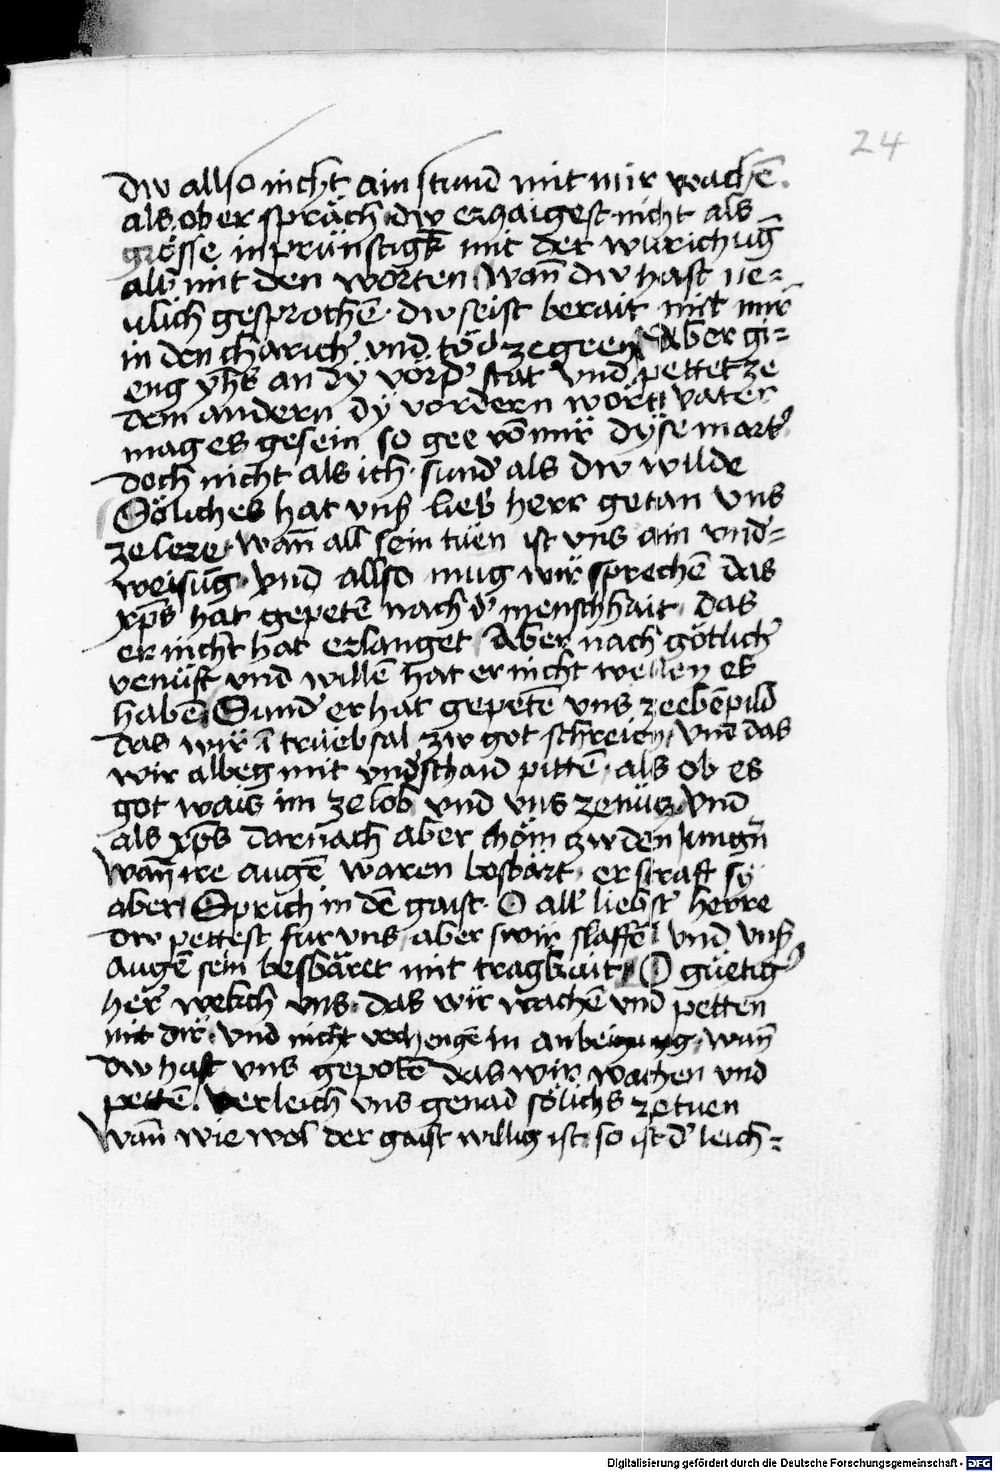 24
dw allso nicht ain stund mit mir wachē.
als ob er spräch dw erzaigest nicht als
grösse inprünstigk̄ mit der würichūg
als mit den worten Wañ dw hast ne=
ulich gesprochē. dw seist berait mit mir
in den charich̾ vnd töd ze geen Aber gi=
eng yh̄s an dÿ vörd̾ stat vnd pettet ze
dem andern dÿ vordern wört vater
mag es gesein so gee vō mir dÿse mart̾
doch nicht als ich. sund̾ als dw wilde
Söliches hat vnß lieb herr getan vns
ze lere. wañ all sein tüen ist vns ain vnd̾=
weisūg. vnd allso müg wir sprechē das
xp̄s hat gepetē nach d̾ menschhait. das
er nicht hat erlanget Aber nach götlich̾
venüft vnd willē hat er nicht wellen es
habē Sund̾ er hat gepetē vns ze ebēpild
das wir ī trüebsal zw got schreien, vnd das
wir albeg mit vnd̾schaid pittē, als ob es
got wais im ze lob vnd vns ze nütz vnd
als xp̄s darnach aber chöm zw den jungn̄
wañ ire augē waren beswärt. er straft sÿ
aber Sprich in dē gaist. O all̾ liebst̾ herre
dw pettest für vns, aber wir slaffē vnd vnß
augē sein beswäret mit tragkait O güetig̾
her̾ wekch vns. das wir wachē vnd petten
mit dir. vnd nicht vechengē in anbeigung, wañ
dw hast vns gepotē das wir wachen vnd
pettē. verleich vns genad sölichs ze tuen
Wañ wie wol der gaist willig ist so ist d̾ leich=
Digitalisierung gefördert durch die Deutsche Forschungsgemeinschaft - DFG